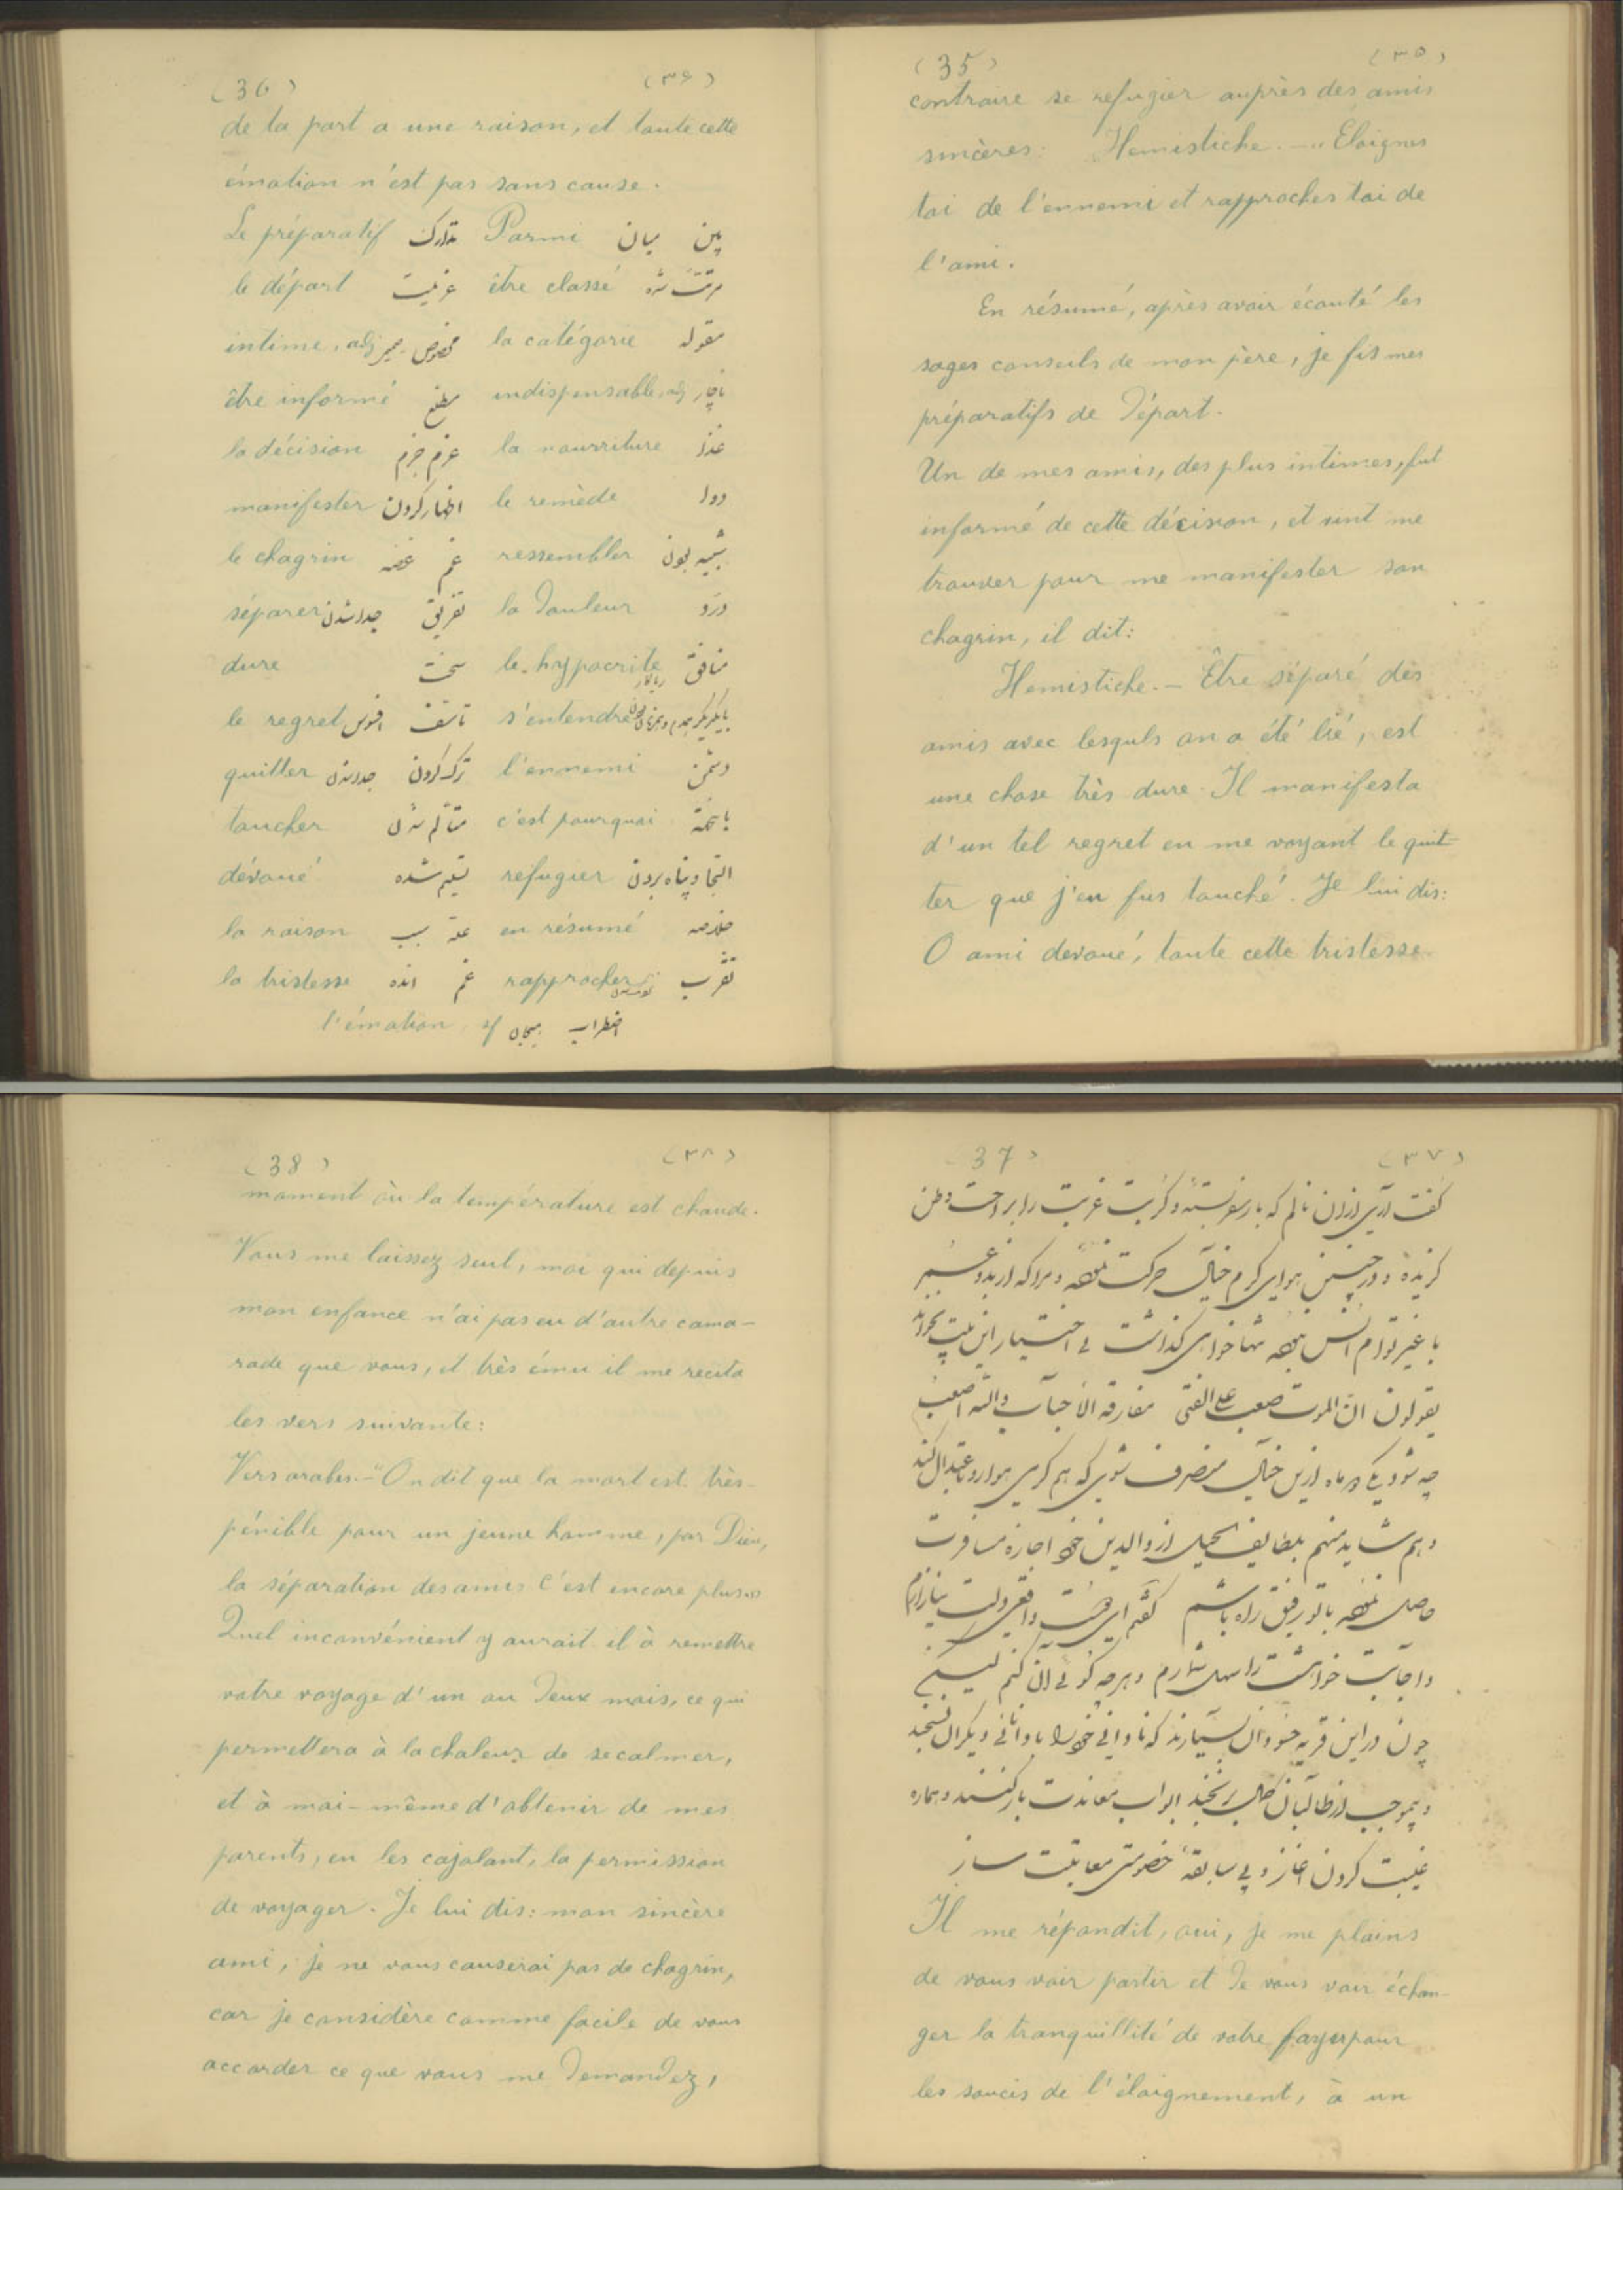 (35) (٣٥)
contraire se refugier auprès des amis
sincères. Hemistiche. — "Eloignes
toi de l'ennemi et rapproches toi de
l'ami.
En résumé, après avoir écouté les
sages conseils de mon père, je fis mes
préparatifs de départ.
Un de mes amis, des plus intimes, fut
informé de cette décision, et vint me
trouver pour me manifester son
chagrin, il dit:
Hemistiche. — Être séparé des
amis avec lesquls on a été lié, est
une chose très dure. Il manifesta
d'un tel regret en me voyant le quit-
ter que j'en fus touché. Je lui dis:
O ami devoué, toute cette tristesse
(36) (٣۶)
de ta part a une raison, et toute cette
émotion n'est pas sans cause.
Le préparatif تدارک Parmi میان بین
le départ عزیمت être classé
intime, adj مخصوص صمیمی la catégorie مقوله
être informé مطلع indispensable, adj ناچار
la décision عزم جزم la nourriture غذا
manifester اظهار کردن le remède دوا
le chagrin غم غصه ressembler شبیه بودن
séparer تفریق جدا شدن la douleur درد
dure سخت le hyppocrite منافق ریاکار
le regret تاسف افسوس s'entendre
quitter ترک کردن جدا شدن l'ennemi دشمن
toucher متألم شدن c'est pourquoi
dévoué تسلیم شده refugier التجا و پناه بردن
la raison علة سبب en résumé خلاصه
la tristesse غم rapprocher تقرب
l'émotion, sf اضطراب هیجان
(37) (٣٧)
گفت آری از آن نالم که بار سفر بستهٔ و کربت غربت را بر راحت وطن
گزیدهٔ و در چنین هوای گرم خیال حرکت نموده و مرا که از بدو
با غیر توام انس نبوده تنها خواهی گذاشت بی اختیار این بیت بخواند
یقولون ان الموت صعب علی الفتی مفارقة الأحباب والله اصعب
چه شود یکی دو ماه ازین خیال منصرف شوی که هم گرمی هوا رو باعتدال کند
و هم شاید منهم بلطایف الحیل از والدین خود اجازه مسافرت
حاصل نموده با تو رفیق راه باشم گفتم ای دلت نیازارم
و اجابت خواهشت را سهل شمارم و هر چه گوئی آن کنم لیکن
چون در این قریه حسودان بسیارند که نادانی خود را با دانائی دیگران نسنجند
و بیموجب از طالبان کمال برنجند ابواب معاندت باز کنند و هماره
غیبت کردن آغاز و بی سابقهٔ خصومتی معاتبت ساز
Il me répondit, oui, je me plains
de vous voir partir et de vous voir échan-
ger la tranquillité de votre foyer pour
les soucis de l'éloignement, à un
(38) (٣٨)
moment où la température est chaude.
Vous me laissez seul, moi qui depuis
mon enfance n'ai pas eu d'autre cama-
rade que vous, et très ému il me recita
les vers suivante:
Vers arabes. — "On dit que la mort est très
pénible pour un jeune homme, par Dieu,
la séparation des amis c'est encore plus."
Quel inconvénient y aurait il à remettre
votre voyage d'un ou deux mois, ce qui
permettera à la chaleur de se calmer,
et à moi-même d'obtenir de mes
parents, en les cajolant, la permission
de voyager. Je lui dis: mon sincère
ami, je ne vous causerai pas de chagrin,
car je considère comme facile de vous
accorder ce que vous me demandez,